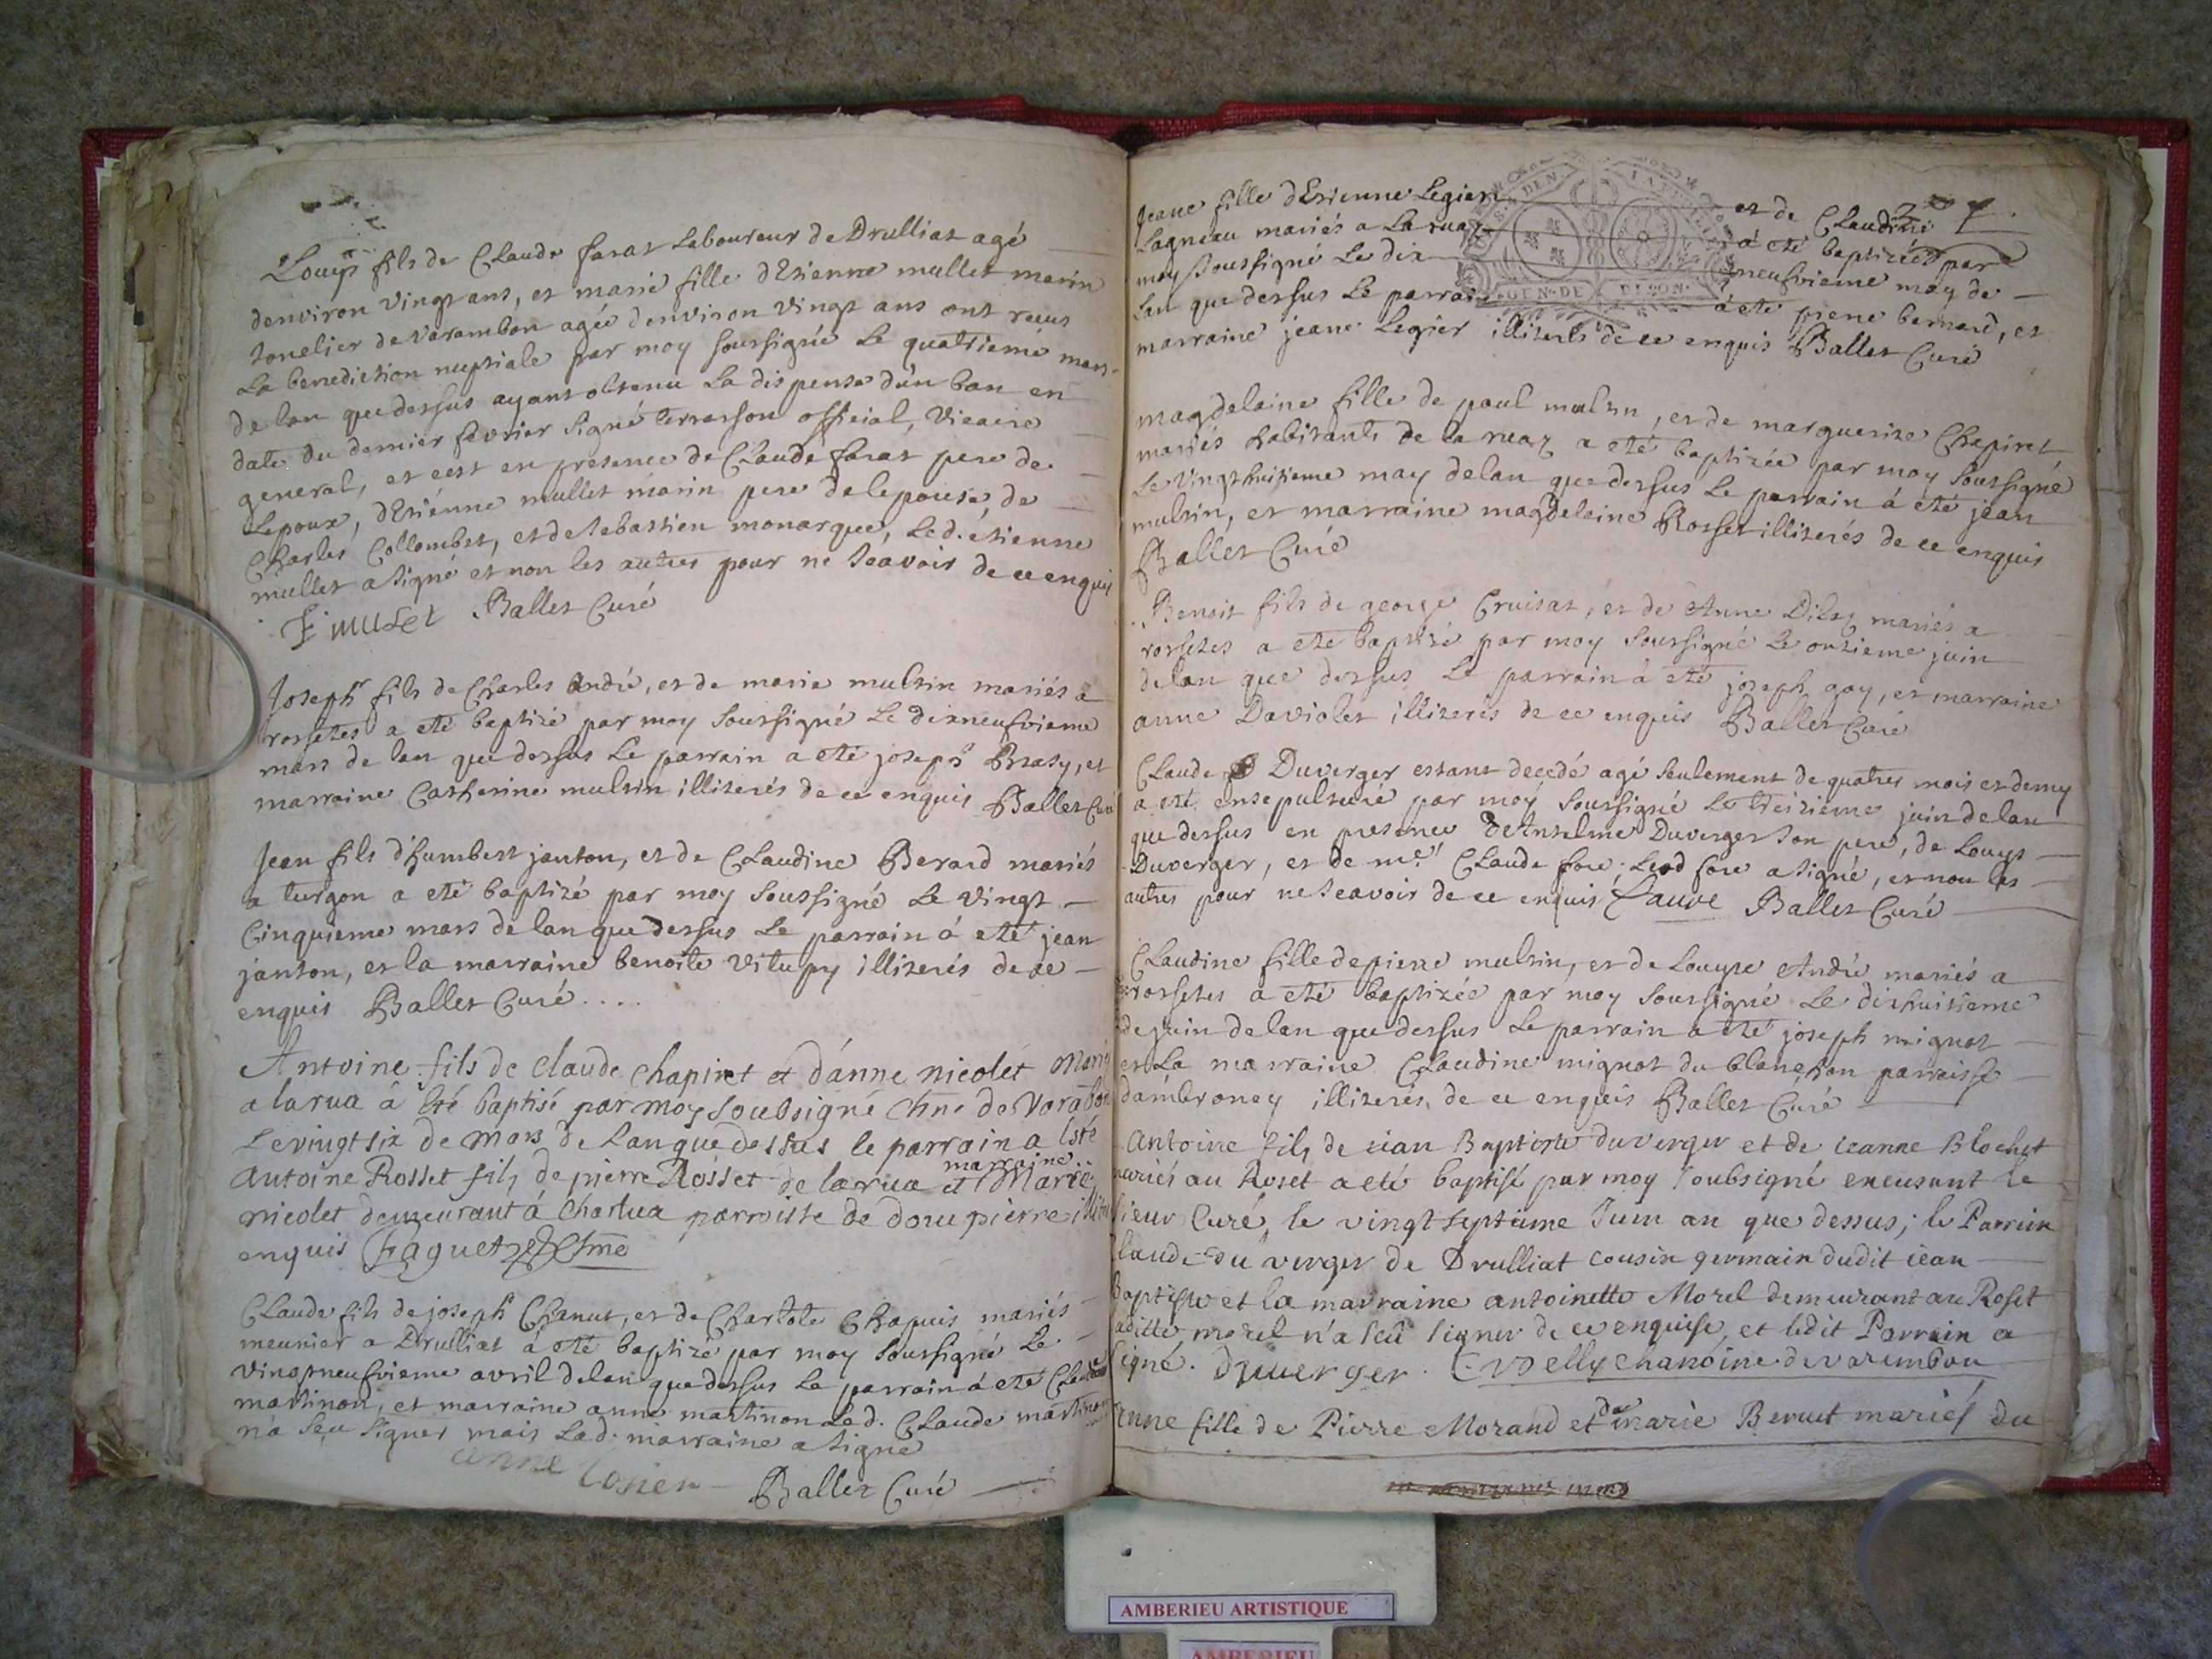 Louys fils de Claude farat Laboureur de Drulliat agé
denviron vingt ans, et marie fille dEstienne mullet marin
tonelier de varambon agée denviron vingt ans ont reçus
La benediction nuptiale par moy soussigné Le quatrieme mars
de lan que dessus ayant obtenu La dispense dun ban en
date du dernier fevrier signé terrasson official, Vicaire
general, et cest en presence de Claude farat pere de
Lepoux, dEstienne mullet marin pere de lepouse, de
Charles Collombet, et de sebastien monarque, Led. étienne
mullet a signé et non les autres pour ne scavoir de ce enquis
E muLet Ballet Curé
Joseph fils de Charles André, et de marie multin mariés a
rossetes a eté baptizé par moy soussigné Le dixneufvieme
mars de lan que dessus Le parrain a eté joseph Brasy, et
marraine Catherine multin illiterés de ce enquis Ballet Curé
Jean fils dhumbert janton, et de Claudine Berard mariés
a turgon a eté baptizé par moy soussigné Le vingt
Cinquieme mars de lan que dessus Le parrain à eté jean
janton, et la marraine benoite vitupy illiterés de ce
enquis Ballet Curé ....
Antoine fils de claude chapiret et d'anne nicolet Mariés
a la rua à eté baptisé par moy soubsigné chne de Varabon
Le vingt six de Mars de Lan que dessus le parrain a esté
Antoine Rosset fils de pierre Rosset de la rua et marraine Marie
nicolet demeurant á Charlua parroisse de dompierre illit
enquis Faguet Chne
Claude fils de joseph Chanut, et de Charlote Chapuis mariés
meunier a Drulliat à eté baptizé par moy soussigné Le
vingtneufvieme avril de lan que dessus Le parrain à eté Claude
martinon, et marraine anne martinon Led. Claude martinon
n'a sçu signer mais Lad. marraine a signé
anne
Ballet Curé
Jeane fille dEstienne Legier et de Claudine
Lagneau mariés a La ruaz a eté baptizée par
moy soussigné Le dix neufvieme may de
Lan que dessus Le parrain à eté pierre bernard, et
marraine jeane Legier illiterés de ce enquis Ballet Curé
GEN. DE DIJON
magdelaine fille de paul multin, et de marguerite Chapiret
mariés habitants de la ruaz a eté baptizée par moy soussigné
Le vingthuitieme may de lan que dessus Le parrain à eté jean
multin, et marraine magdeleine Rosset illiterés de ce enquis
Ballet Curé
Benoit fils de george Cruisat, et de Anne Dilaz mariés a
rossetes a eté baptizé par moy soussigné Le onzieme juin
de lan que dessus Le parrain à eté joseph gay, et marraine
anne Daviolet illiterés de ce enquis Ballet Curé
Claude Duverger estant decedé agé seulement de quatres mois et demy
a eté ensepulturé par moy soussigné Le treizieme juin de lan
que dessus en presence de Anselme Duverger son pere, de Louys
Duverger, et de me. Claude fore, Led fore a signé, et non les
autres pour ne scavoir de ce enquis Ballet Curé
Claudine fille de pierre multin, et de Louyse André mariés a
rossetes a eté baptizée par moy soussigné Le dixhuitieme
de juin de lan que dessus Le parrain a eté joseph mignot
et La marraine Claudine mignot du blanchon parroisse
dambroney illiterés de ce enquis Ballet Curé
Antoine fils de iean Baptiste duverger et de ieanne Blochet
mariés au Roset a eté baptisé par moy soubsigné excusant le
sieur Curé, le vingt septieme Juin an que dessus; le Parrein
Claude du verger de Drulliat cousin germain dudit iean
baptiste et la marraine antoinette Morel demeurant au Roset
laditte morel n'a sceu signer de ce enquise, et ledit Parrein a
signé. Duverger. C Velly chanoine de varembon
Anne fille de Pierre Morand et de marie Berruet mariés du
AMBERIEU ARTISTIQUE
AMBERIEU